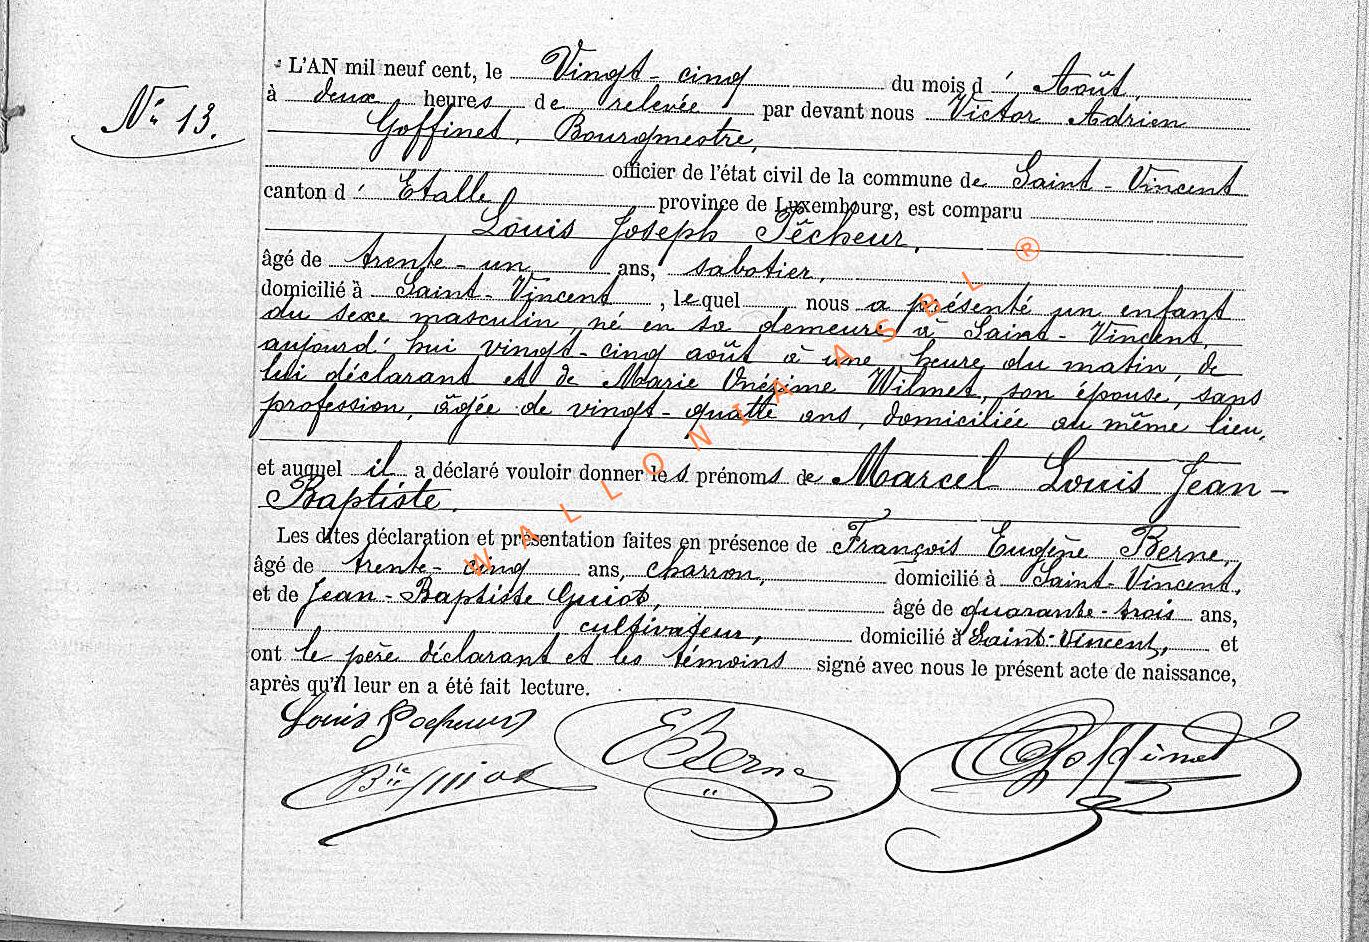 L'AN mil neuf cent, le Vingt-cinq du mois d' Août,
N° 13.
à deux heures de relevée par devant nous Victor Adrien
Goffinet, Bourgmestre,
officier de l'état civil de la commune de Saint-Vincent
canton d' Etalle province de Luxembourg, est comparu
Louis Joseph Pêcheur,
âgé de trente-un ans, sabotier,
domicilié à Saint-Vincent, lequel nous a présenté un enfant
du sexe masculin, né en sa demeure à Saint-Vincent,
aujourd'hui vingt-cinq août à une heure du matin, de
lui déclarant et de Marie Onésime Wilmet, son épouse, sans
profession, âgée de vingt-quatre ans, domiciliée au même lieu,
et auquel il a déclaré vouloir donner les prénoms de Marcel Louis Jean-
Baptiste.
Les dites déclaration et présentation faites en présence de François Eugène Berne,
âgé de trente-cinq ans, charron, domicilié à Saint-Vincent,
et de Jean-Baptiste Guiot, âgé de quarante-trois ans,
cultivateur, domicilié à Saint-Vincent, et
ont le père déclarant et les témoins signé avec nous le présent acte de naissance,
après qu'il leur en a été fait lecture.
Louis Pecheur
EBerne
Goffinet
Bte Guiot
WALLONIA ASBL ®